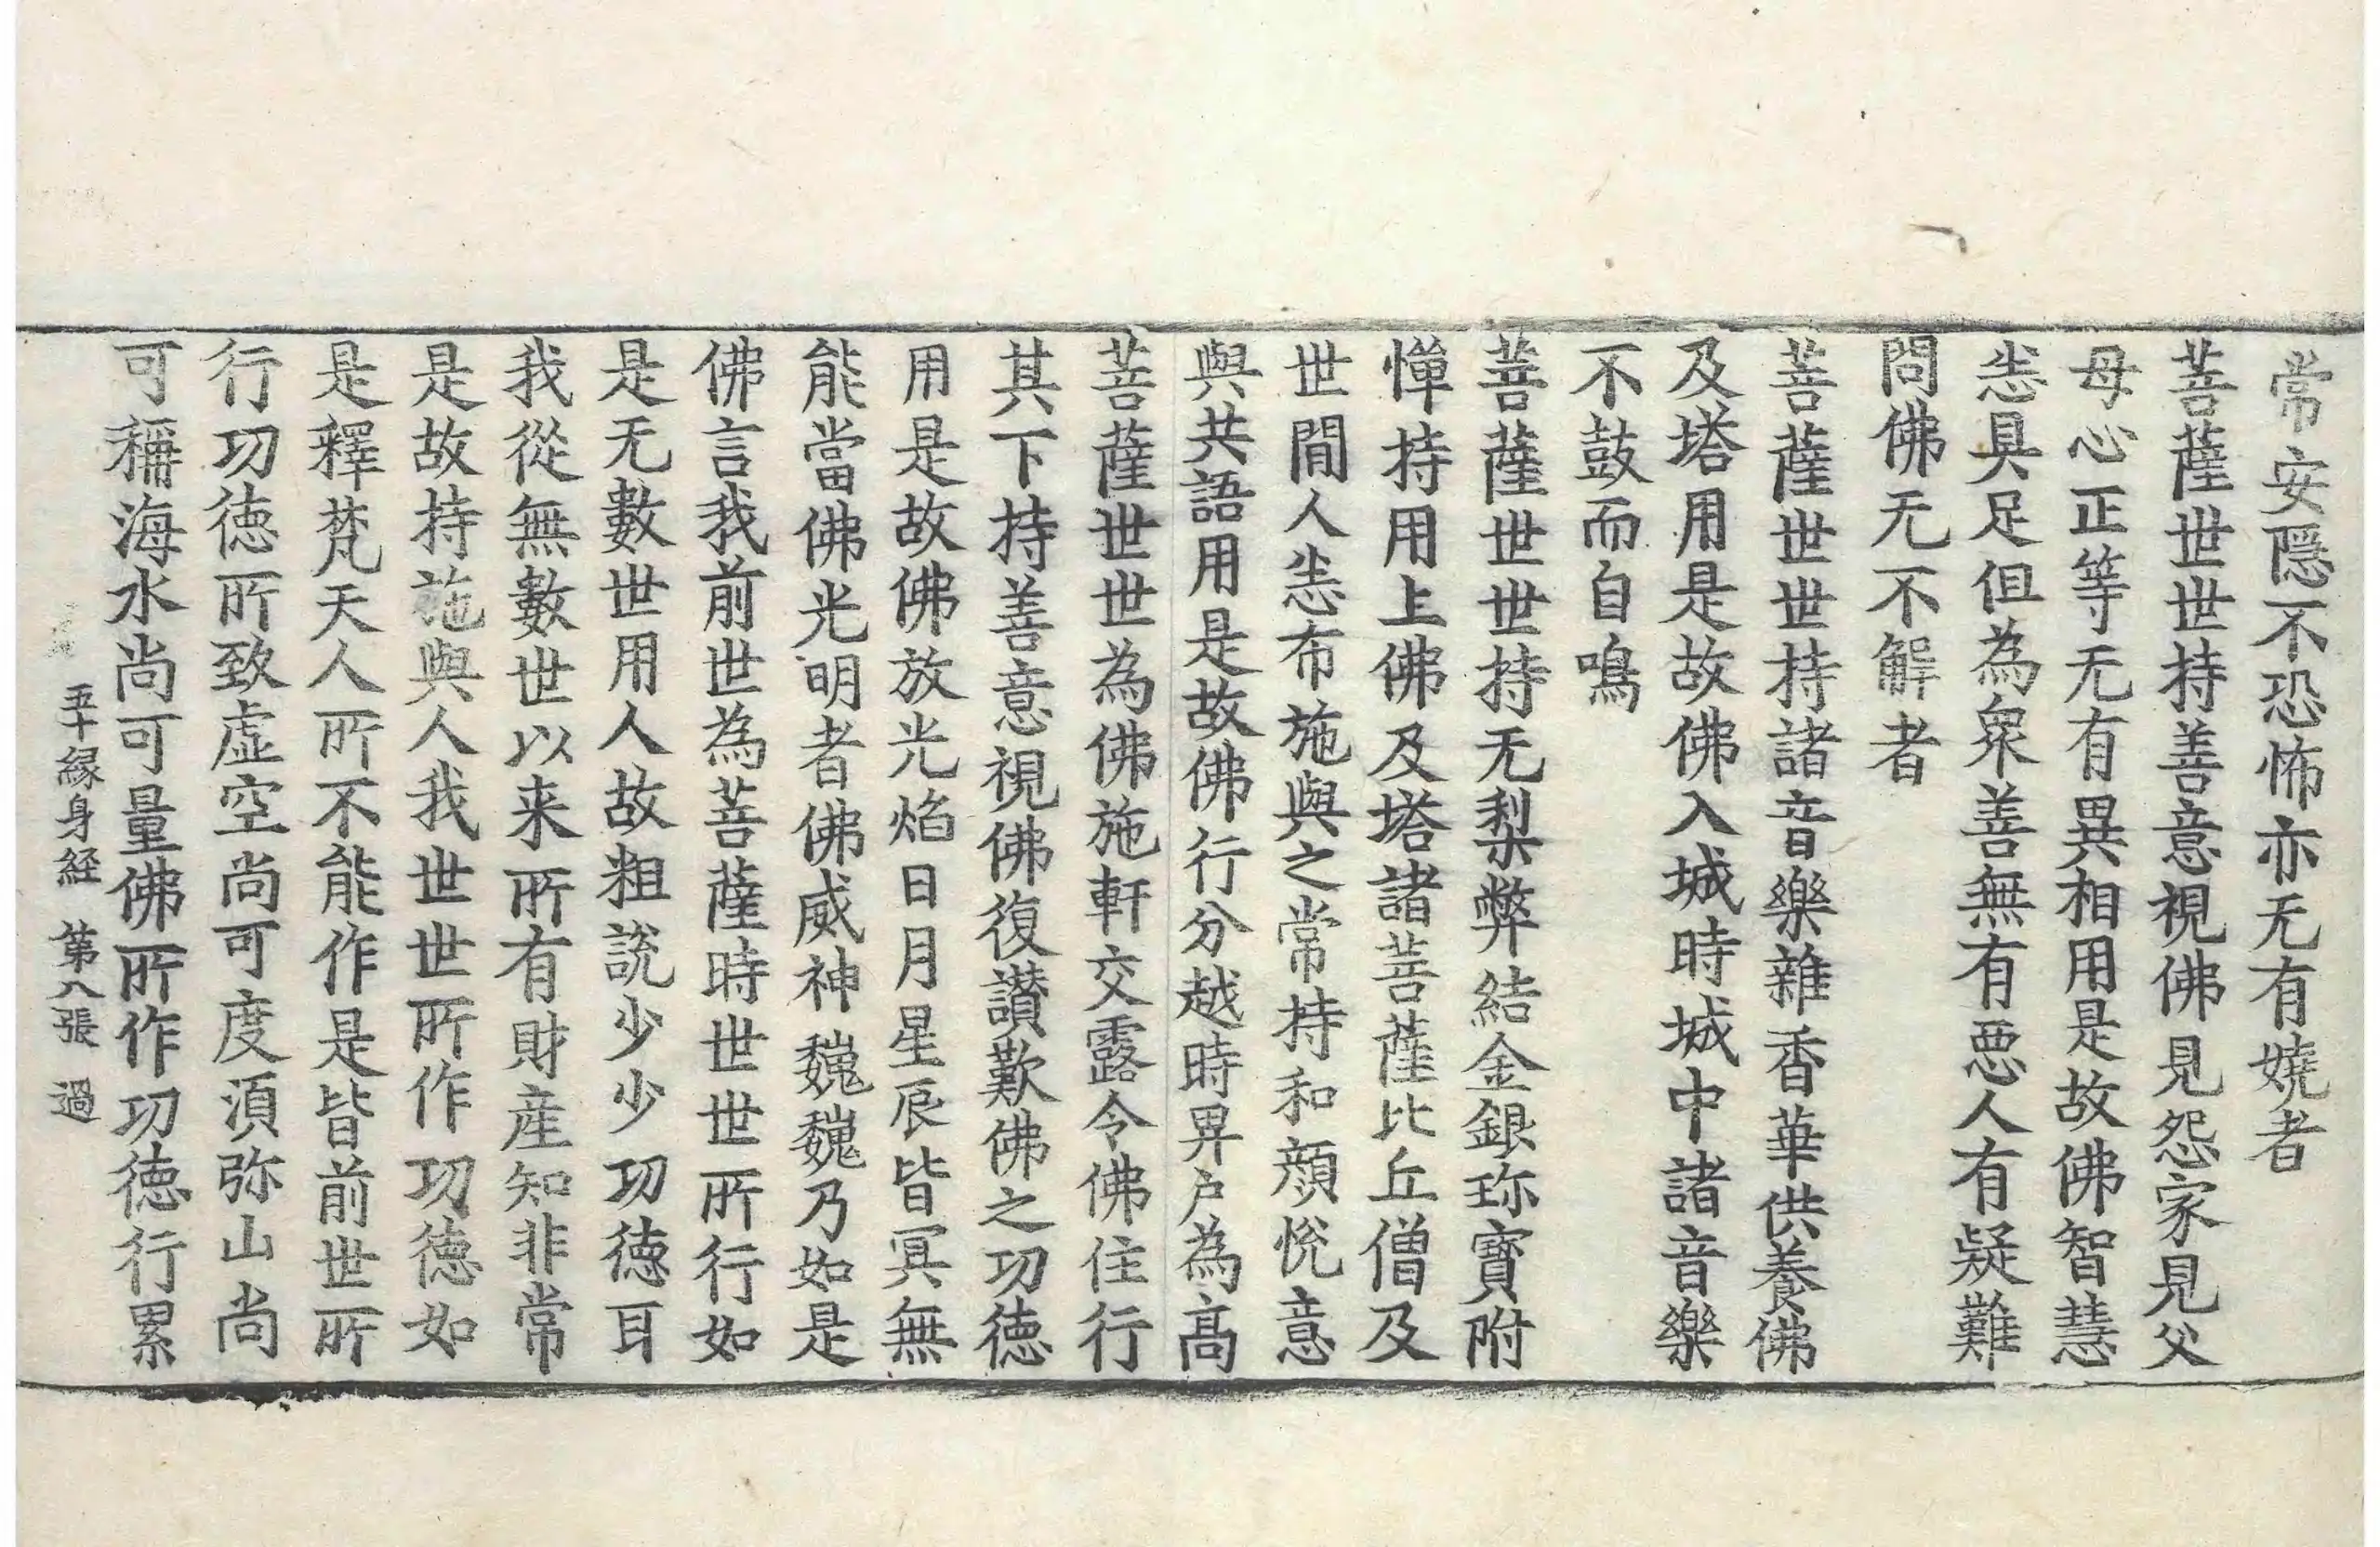 常安隠不恐怖亦无有嬈者
菩薩世世持善意視佛見怨家見父
母心正等无有異相用是故佛智慧
恙具足但為衆善無有悪人有疑難
問佛无不解者
菩薩世世持諸音樂雜香華供養佛
及塔用是故佛入城時城中諸音樂
不鼓而自鳴
菩薩世世持无梨弊結金銀珎寳附
憚持用上佛及塔諸菩薩比丘僧及
世間人恙布施與之常持和顔恱意
與共語用是故佛行分越時畀户為髙
菩薩世世為佛施軒交露令佛住行
其下持善意視佛復讃歎佛之功徳
用是故佛放光焰日月星辰皆冥無
能當佛光明者佛威神巍巍乃如是
佛言我前世為菩薩時世世所行如
是无數世用人故粗説少少功徳耳
我從無數世以来所有財産知非常
是故持施與人我世世所作功徳如
是釋梵天人所不能作是皆前世所
行功徳所致虚空尚可度湏弥山尚
可稱海水尚可量佛所作功徳行累
五十縁身経 第八張 過